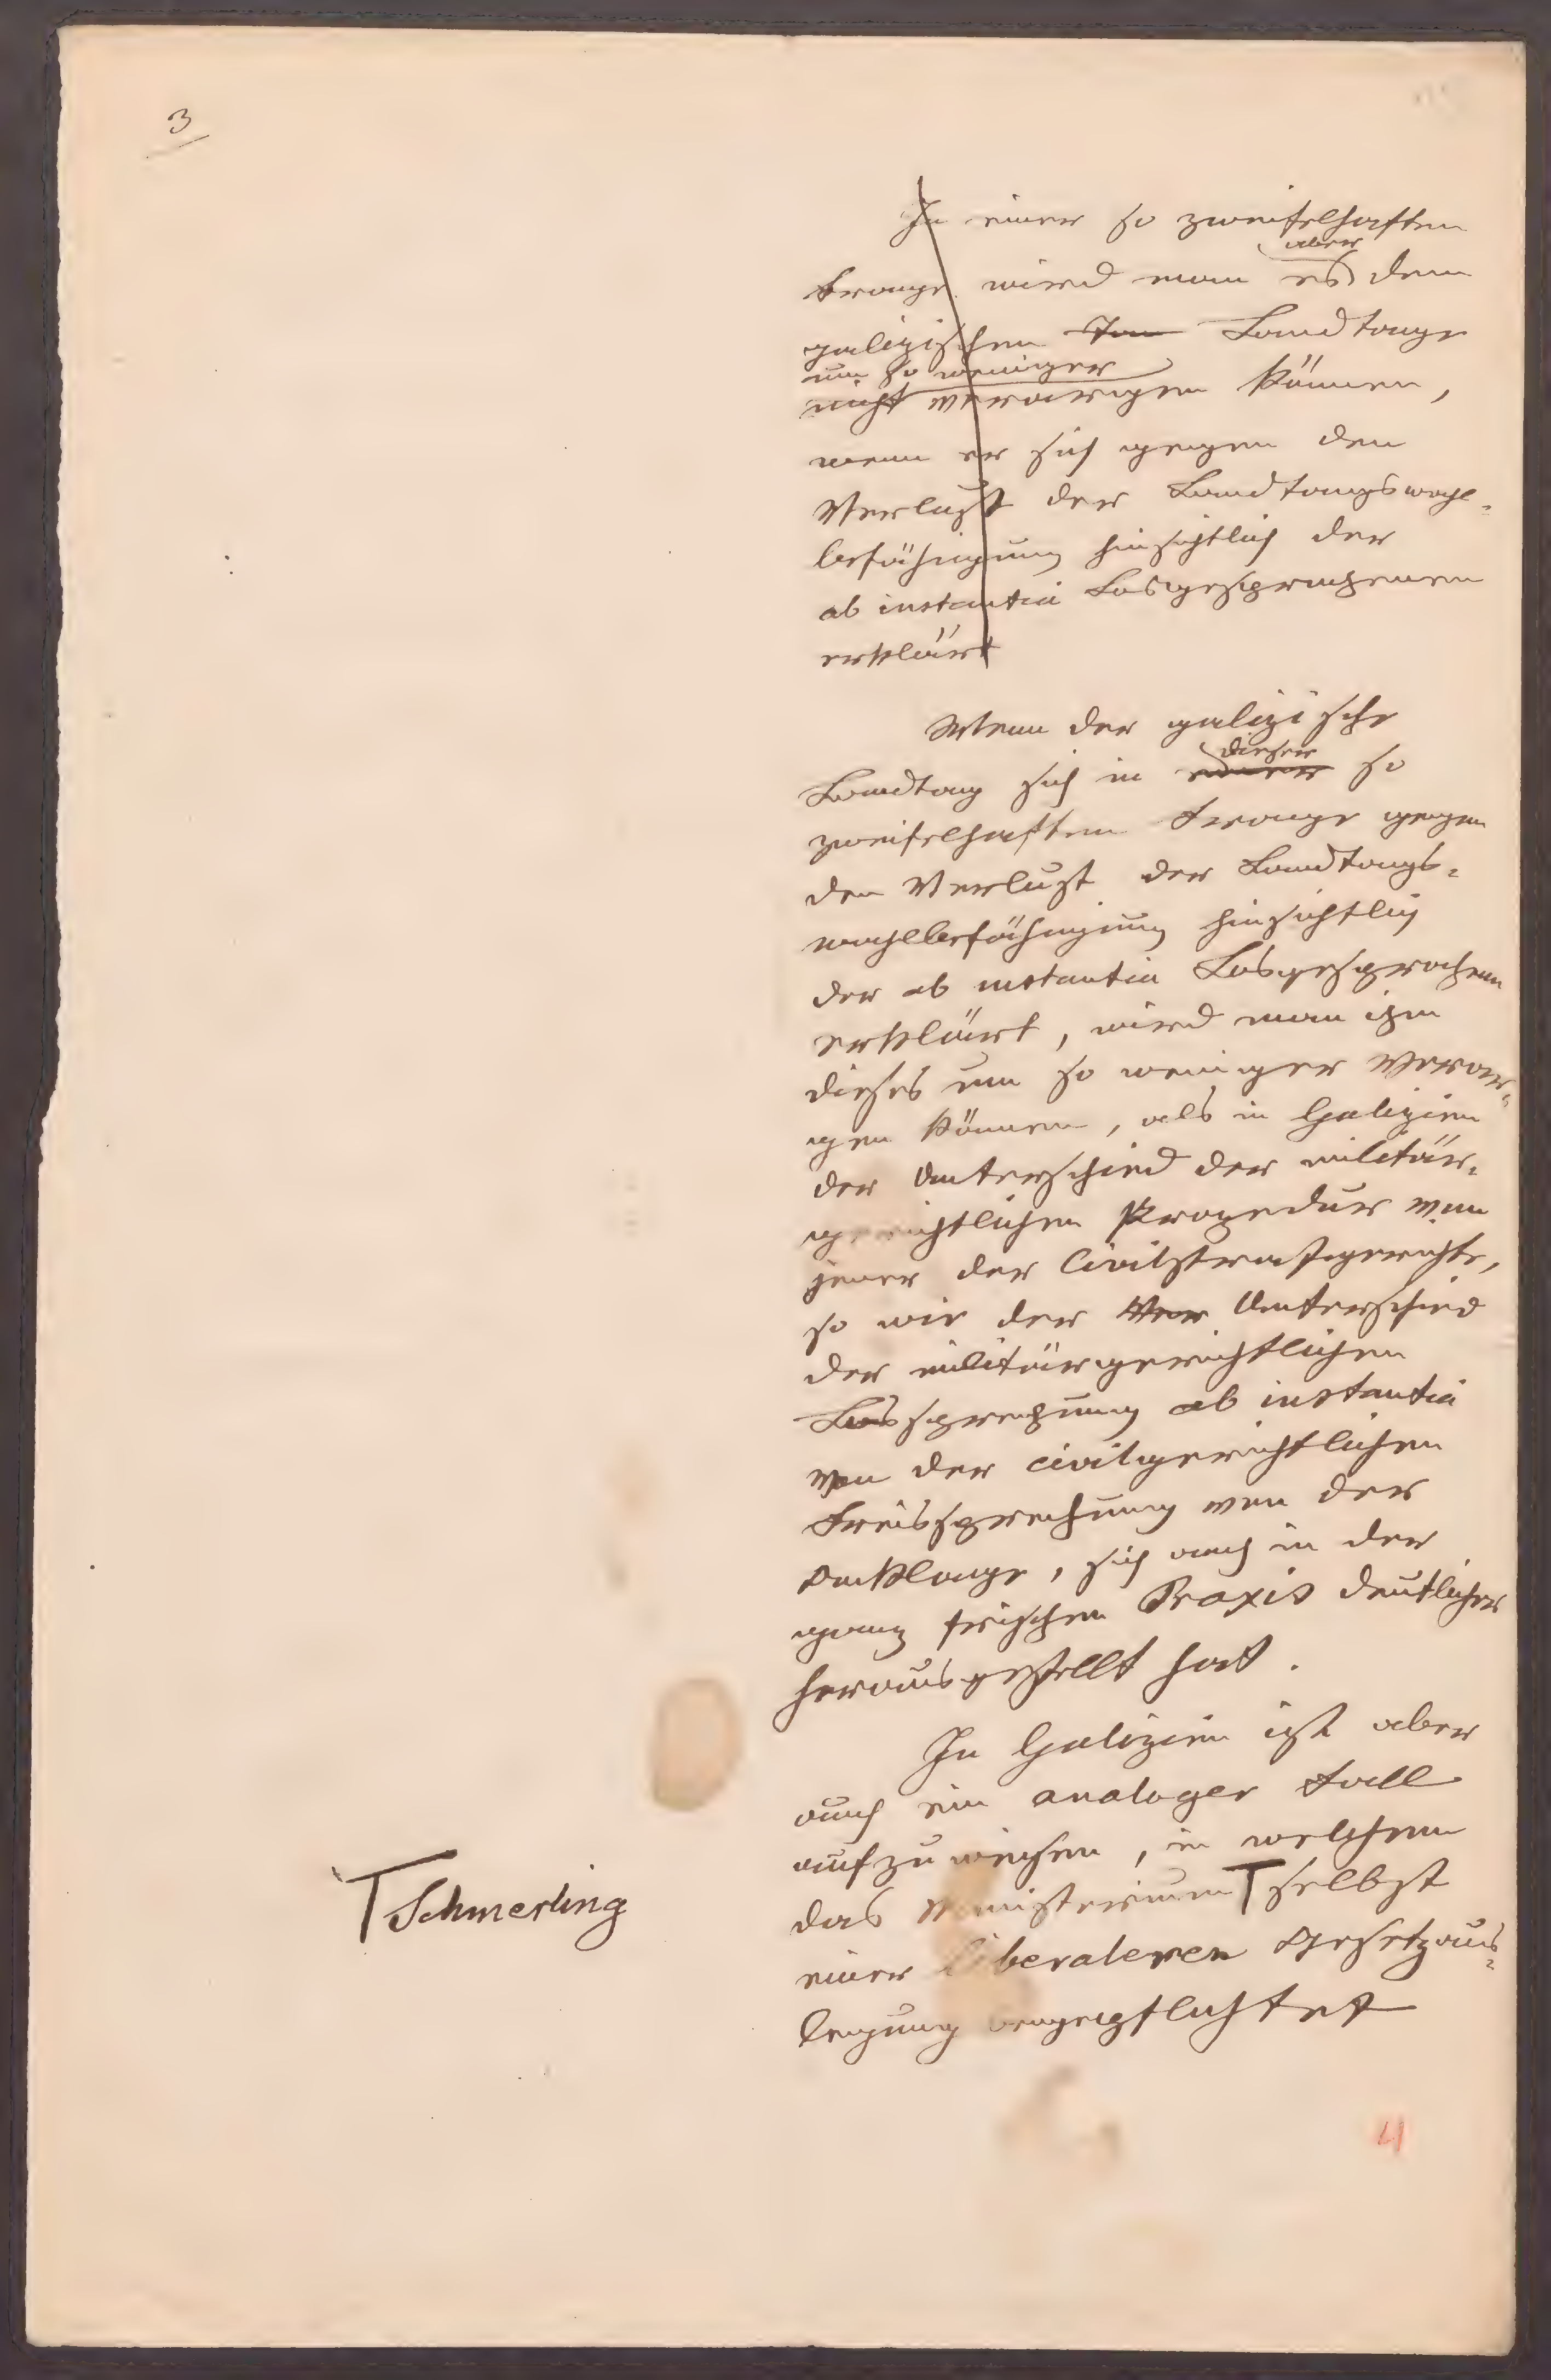 3
In einer so zweifelhaften
aber
Frage wird man es dem
galizischen Lan Landtage
um so weniger
nicht verargen können,
wenn er sich gegen den
Verlust der Landtagswahl-
befähigung hinsichtlich der
ab instantia Losgesprochenen
erklärt
Wenn der galizische
dieser
Landtag sich in einer so
zweifelhaften Frage gegen
den Verlust der Landtags-
wahlbefähigung hinsichtlich
der ab instantia Losgesprochenen
erklärt, wird man ihm
dieses um so weniger verar-
gen können, als in Galizien
der Unterschied der militär-
gerichtlichen Prozedur von
jener der Civilstrafgerichte,
so wie der Unterschied
der militärgerichtlichen
Lossprechung ab instantia
von der civilgerichtlichen
Freisprechung von der
Anklage, sich auch in der
ganz frischen Praxis deutlicher
herausgestellt hat.
In Galizien ist aber
auch ein analoger Fall
aufzuweisen, in welchem
das Ministerium T selbst
T Schmerling
einer liberaleren Gesetzaus-
legung beigepflichtet
4